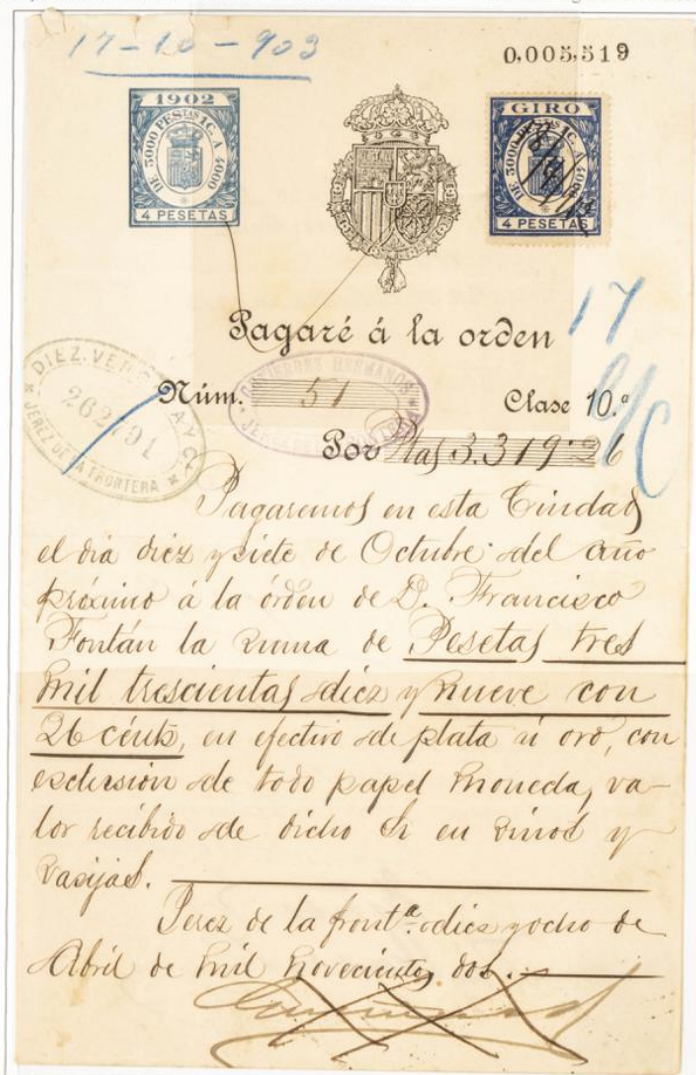 17-10-903
0,005,519
1902
DE 3000 PESTAS 1 C. A 4000
4 PESETAS
GIRO
DE 3000 PESETAS 1 C. A 4000
4 PESETAS
Pagaré á la orden
17
DIEZ. VERGARA Y Cª
262791
JEREZ DE LA FRONTERA
Núm. 51
HERMANOS
Clase 10.ª
Por Ptas 3.319'26
Pagaremos en esta Ciudad
el dia diez y siete de Octubre del año
próximo á la órden de D. Francisco
Fontán la suma de Pesetas tres
mil trescientas diez y nueve con
26 cénts, en efectivo de plata ú oro, con
exclusión de todo papel moneda, va-
lor recibido de dicho Sr en vinos y
vasijas.
Jerez de la frontª diez y ocho de
Abril de mil novecientos dos.